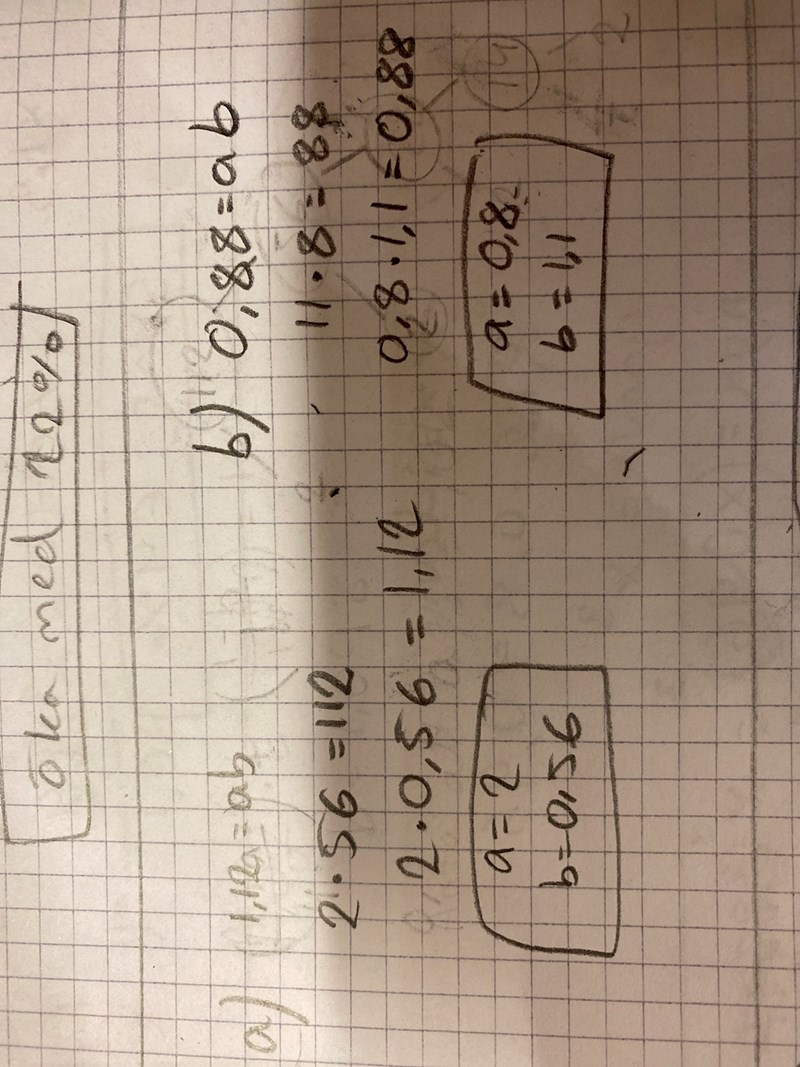 öka med 22%
a) 1,12=ab
2·56=112
2·0,56=1,12
a=2
b=0,56
b) 0,88=ab
11·8=88
0,8·1,1=0,88
a=0,8
b=1,1